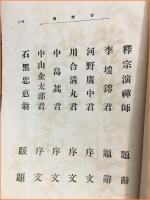 釋宗演禪師 題辭
李堈鎔君 題辭
河野廣中君 序文
川合清丸君 序文
中島蒿君 序文
中山金太郎君 序文
石黑忠悳翁 題